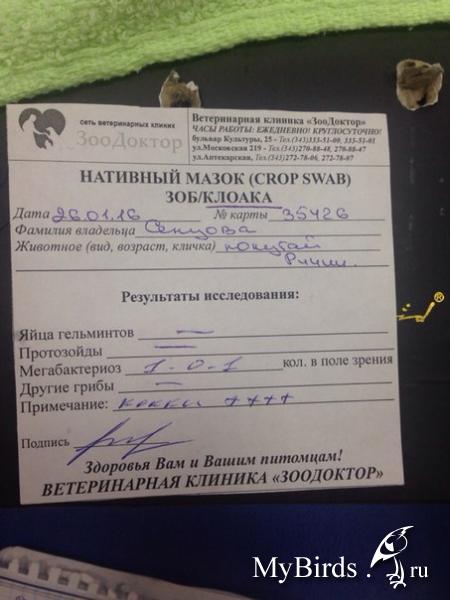 сеть ветеринарных клиник
ЗооДоктор
Ветеринарная клиника «ЗооДоктор»
ЧАСЫ РАБОТЫ: ЕЖЕДНЕВНО! КРУГЛОСУТОЧНО!
бульвар Культуры, 25 - Тел.(343)333-51-00, 333-51-01
ул.Московская 219 - Тел.(343)270-88-48, 270-88-47
ул.Аптекарская, Тел.(343)272-78-06, 272-78-07
НАТИВНЫЙ МАЗОК (CROP SWAB)
ЗОБ/КЛОАКА
Дата 26.01.16 № карты 35426
Фамилия владельца
Животное (вид, возраст, кличка) попугай
Риччи.
Результаты исследования:
Яйца гельминтов —
Протозойды —
Мегабактериоз 1-0-1 кол. в поле зрения
Другие грибы —
Примечание: кокки ++++
Подпись
Здоровья Вам и Вашим питомцам!
ВЕТЕРИНАРНАЯ КЛИНИКА «ЗООДОКТОР»
MyBirds.ru